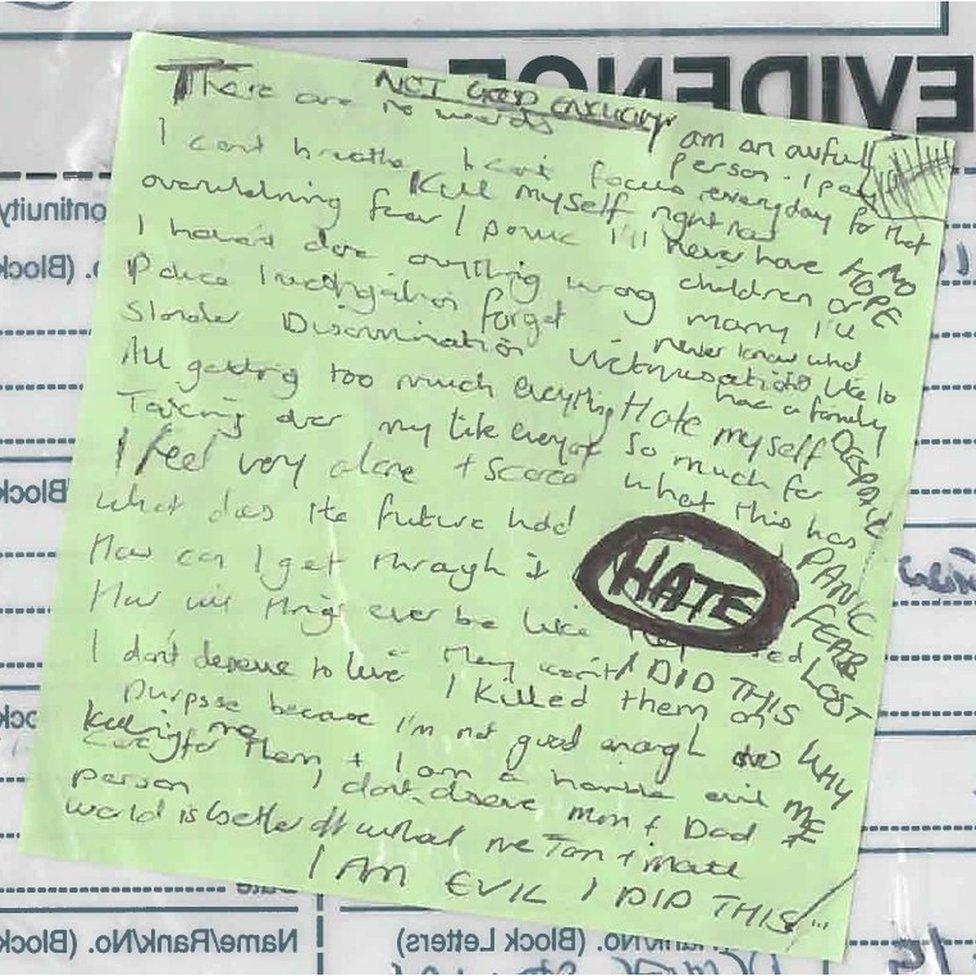 EVIDENCE
NOT GOOD ENOUGH
There are no words
I am an awful person. I pay everyday for that
I can't breathe I can't focus
Kill myself right now
overwhelming fear I panic I'll never have children or marry I'll never know what it's like to have a family
NO HOPE
I haven't done anything wrong
Police Investigation forget
Slander Discrimination Victimisation
All getting too much everything
Hate myself so much for what this has
DESPAIR
Taking over my life
I feel very alone + scared
What does the future hold
PANIC
How can I get through it
HATE
FEAR
How will things ever be like
LOST
they won't
I DID THIS
I don't deserve to live I killed them on purpose because I'm not good enough to care for them + I am a horrible evil person
WHY ME
Killing me
I don't deserve Mum + Dad
world is better off without me
I AM EVIL I DID THIS
(Block
(Block
Name/Rank/No. (Block
Rank/No. (Block Letters)